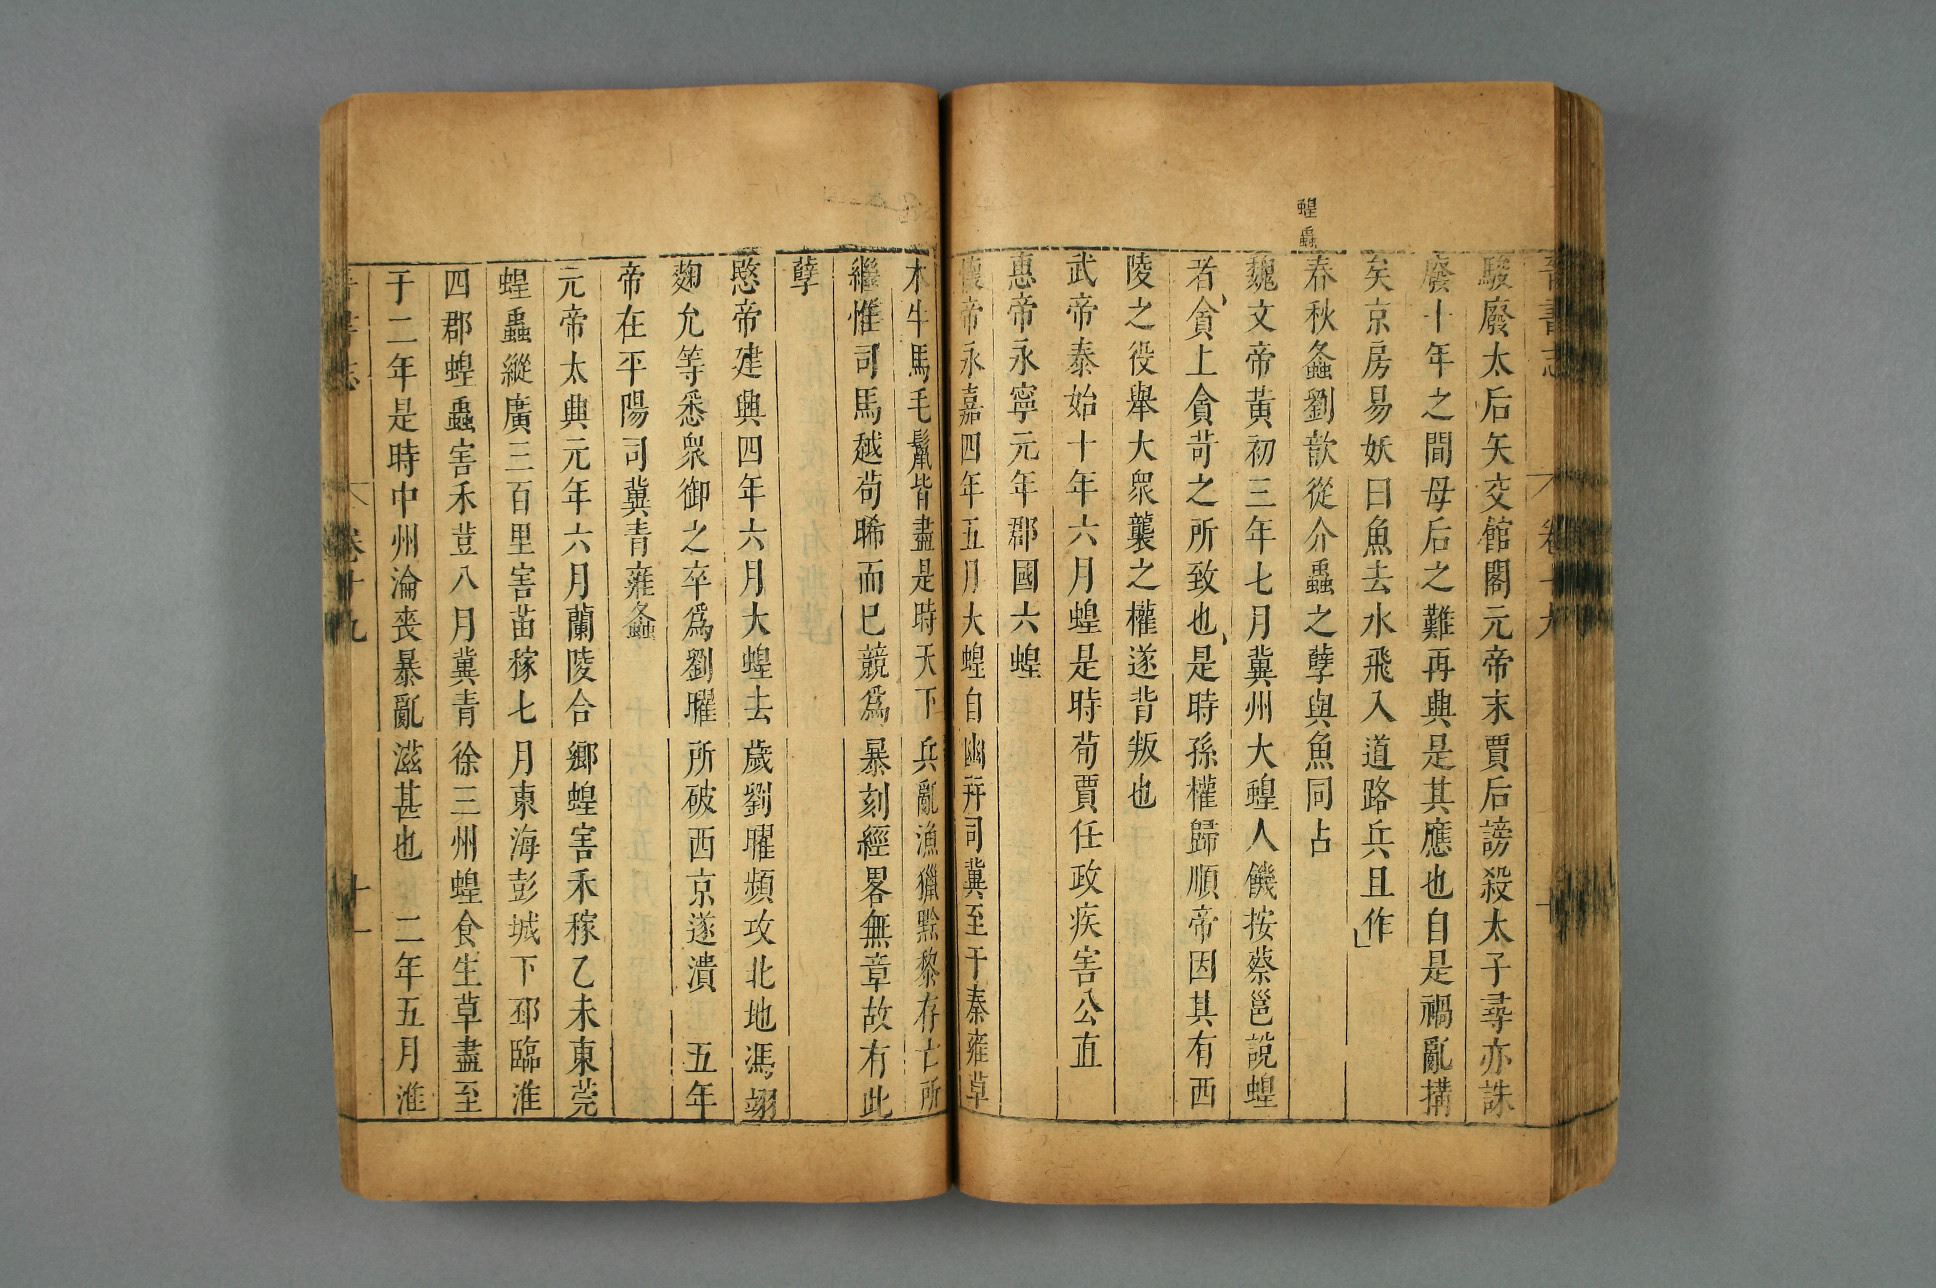 晉書志 卷十九 十
駿廢太后矢交館閣元帝末賈后謗殺太子尋亦誅
廢十年之間母后之難再興是其應也自是禍亂搆
矣京房易妖曰魚去水飛入道路兵且作
蝗蟲
春秋螽劉歆從介蟲之孽與魚同占
魏文帝黃初三年七月冀州大蝗人饑按蔡邕說蝗
者貪上貪苛之所致也是時孫權歸順帝因其有西
陵之役舉大衆襲之權遂背叛也
武帝泰始十年六月蝗是時荀賈任政疾害公直
惠帝永寧元年郡國六蝗
懷帝永嘉四年五月大蝗自幽幷司冀至于秦雍草
木牛馬毛鬣皆盡是時天下兵亂漁獵黔黎存亡所
繼惟司馬越苟晞而已競爲暴刻經畧無章故有此
孽
愍帝建興四年六月大蝗去歲劉曜頻攻北地馮翊
麴允等悉衆御之卒爲劉曜所破西京遂潰 五年
帝在平陽司冀青雍螽
元帝太興元年六月蘭陵合鄉蝗害禾稼乙未東莞
蝗蟲縱廣三百里害苗稼七月東海彭城下邳臨淮
四郡蝗蟲害禾荳八月冀青徐三州蝗食生草盡至
于二年是時中州淪喪暴亂滋甚也 二年五月淮
晉書志 卷十九 十一